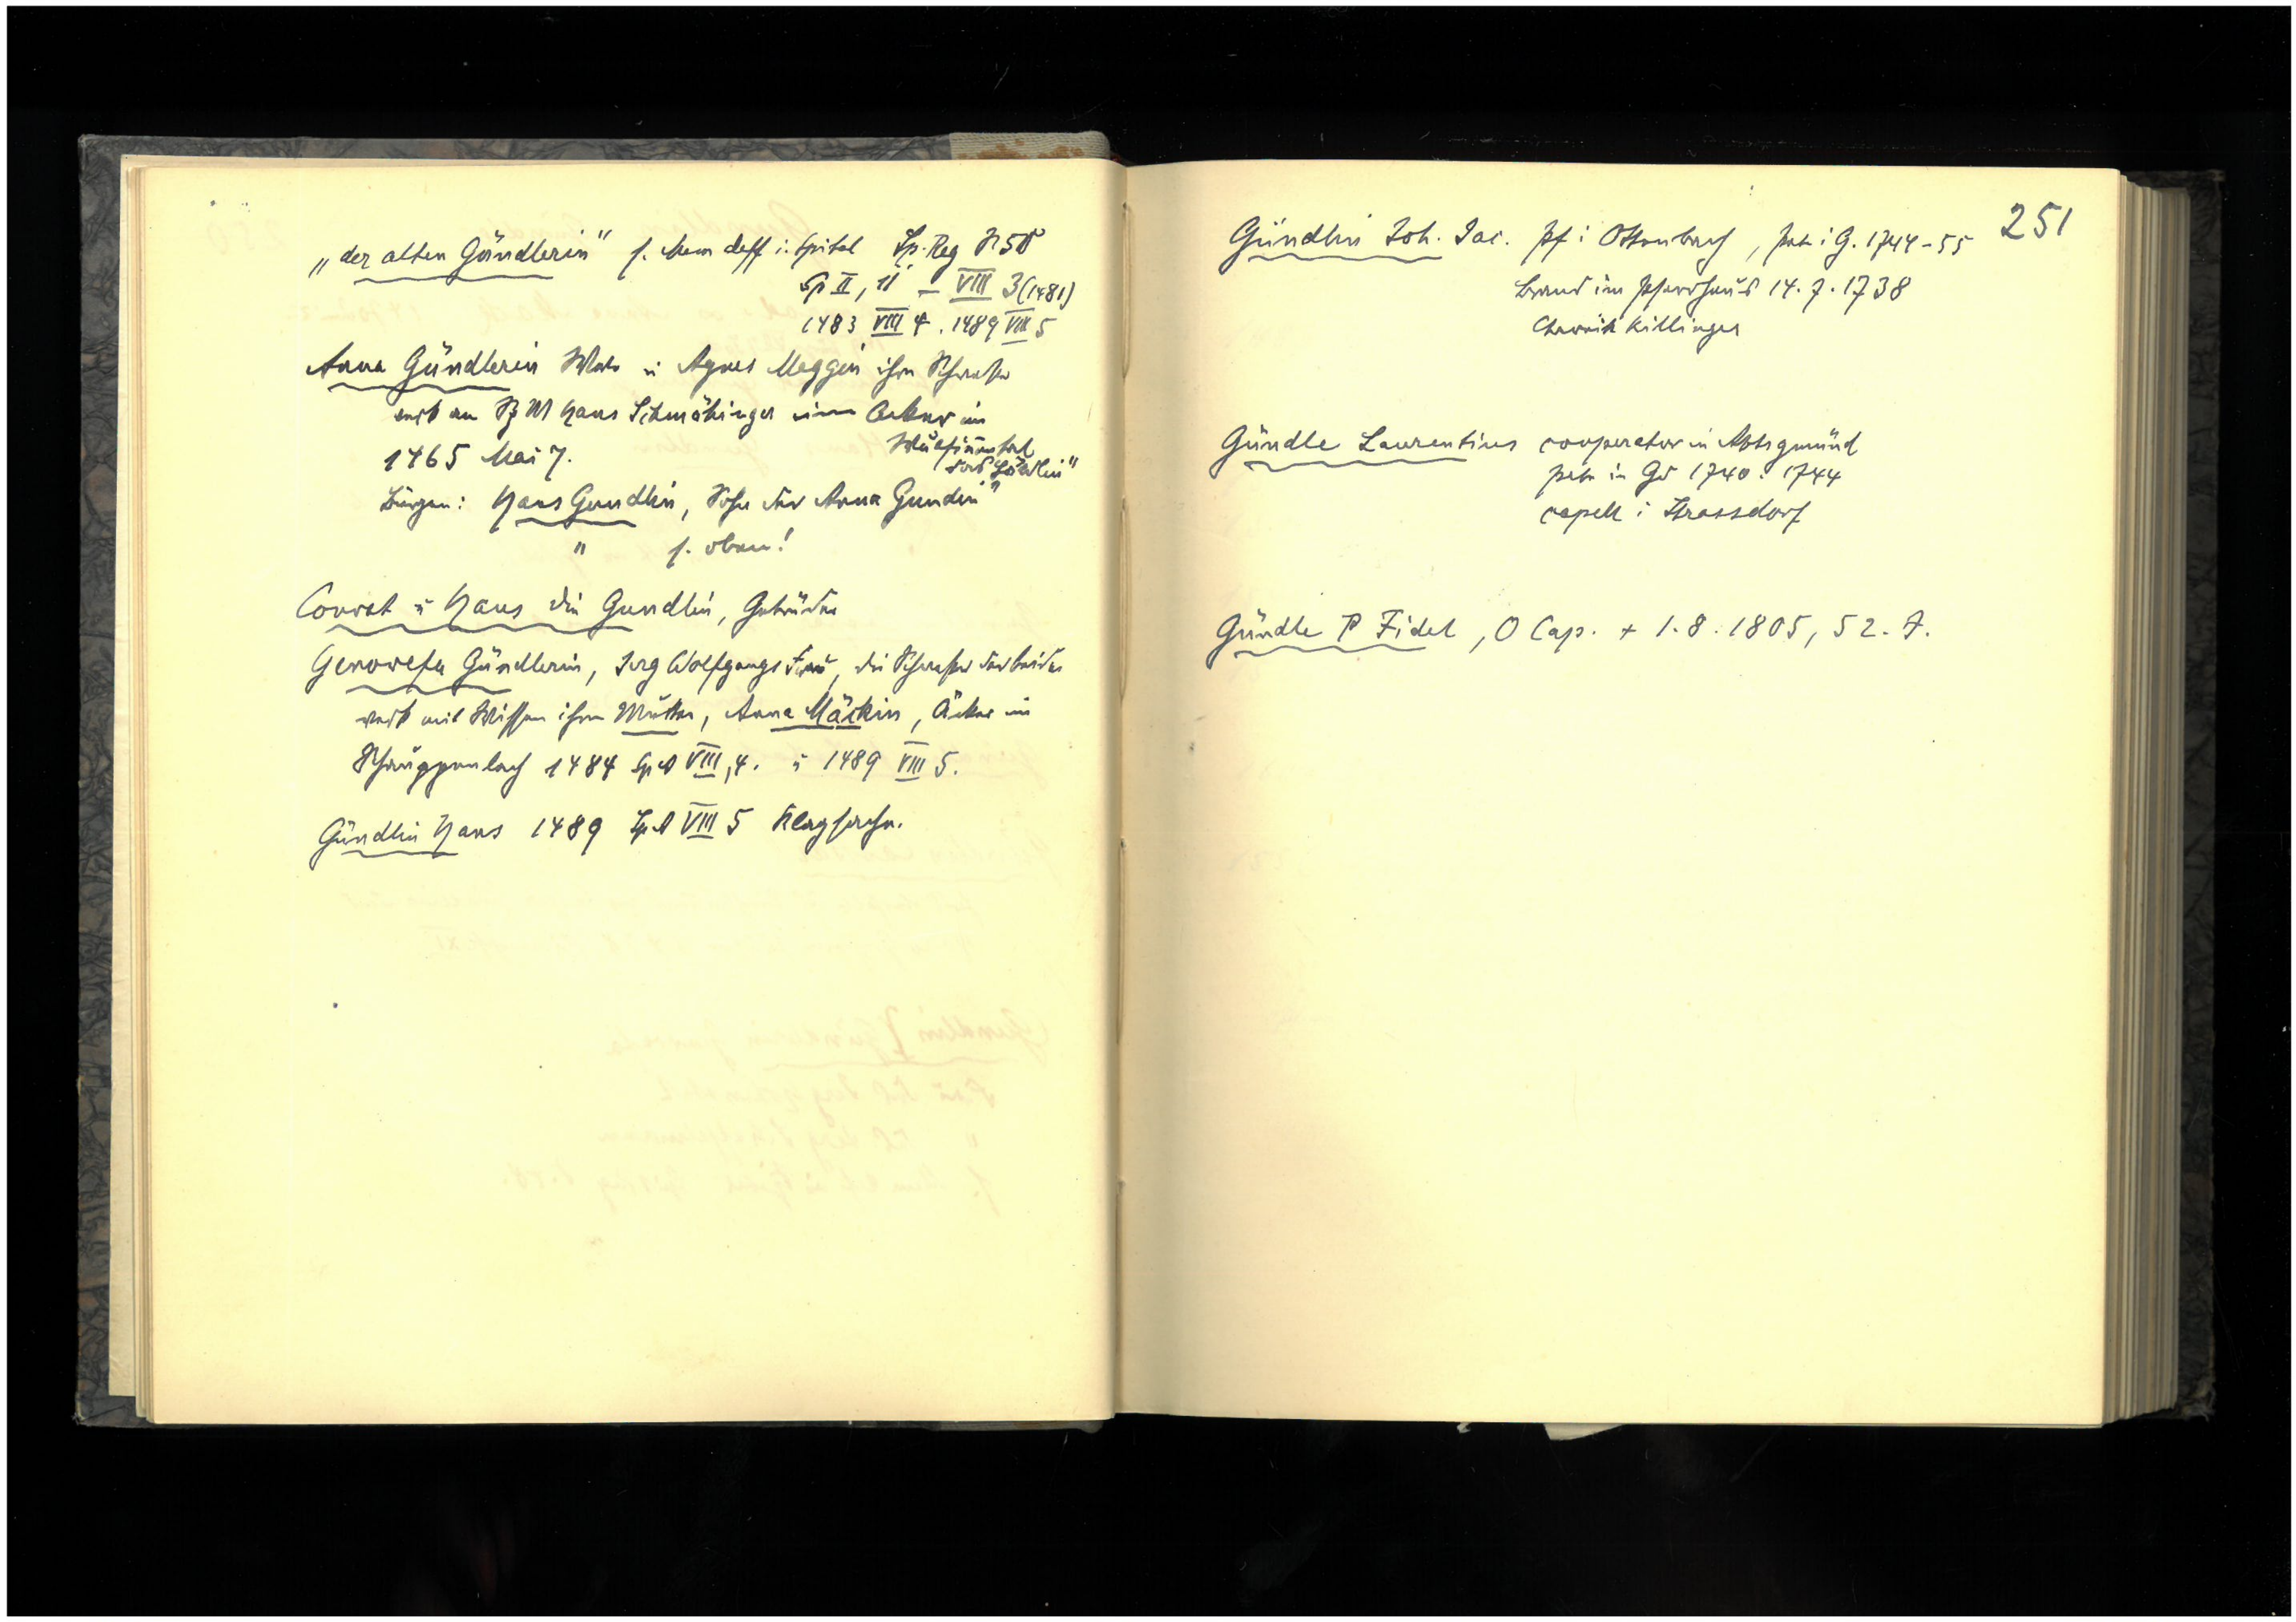 „der alten Gündlerin" s. Mem deff i. Spital Sp. Reg N 58
Sp II, 11 — VIII 3 (1481)
1483 VIII 4. 1489 VIII 5
Anna Gündlerin u Agnes Meggin ihre Schwester
verk an Hans Schmähinger einen Acker im
1465 Mai 7.
Bürgen: Hans Gundlin, Sohn der Anna Gundin"
" s. oben!
Conrat u Hans die Gundlin, Gebrüder
Genovefa Gündlerin, Jerg Wolfgangs Frau, die Schwester der beiden
verk mit Wissen ihrer Mutter, Anna Mäckin, Äcker im
Schauppenloch 1484 Sp A VIII, 4. u 1489 VIII 5.
Gündlin Hans 1489 Sp A VIII 5 Klagsache.
251
Gündlin Joh. Jac. Pf i Ottenbach, i G. 1744-55
Brand im Pfarrhaus 14.7.1738
Chronik Killinger
Gündle Laurentius cooperator in Abtsgmünd
in Gd 1740. 1744
capell i Strassdorf
Gündle P Fidel, O Cap. + 1.8.1805, 52. J.